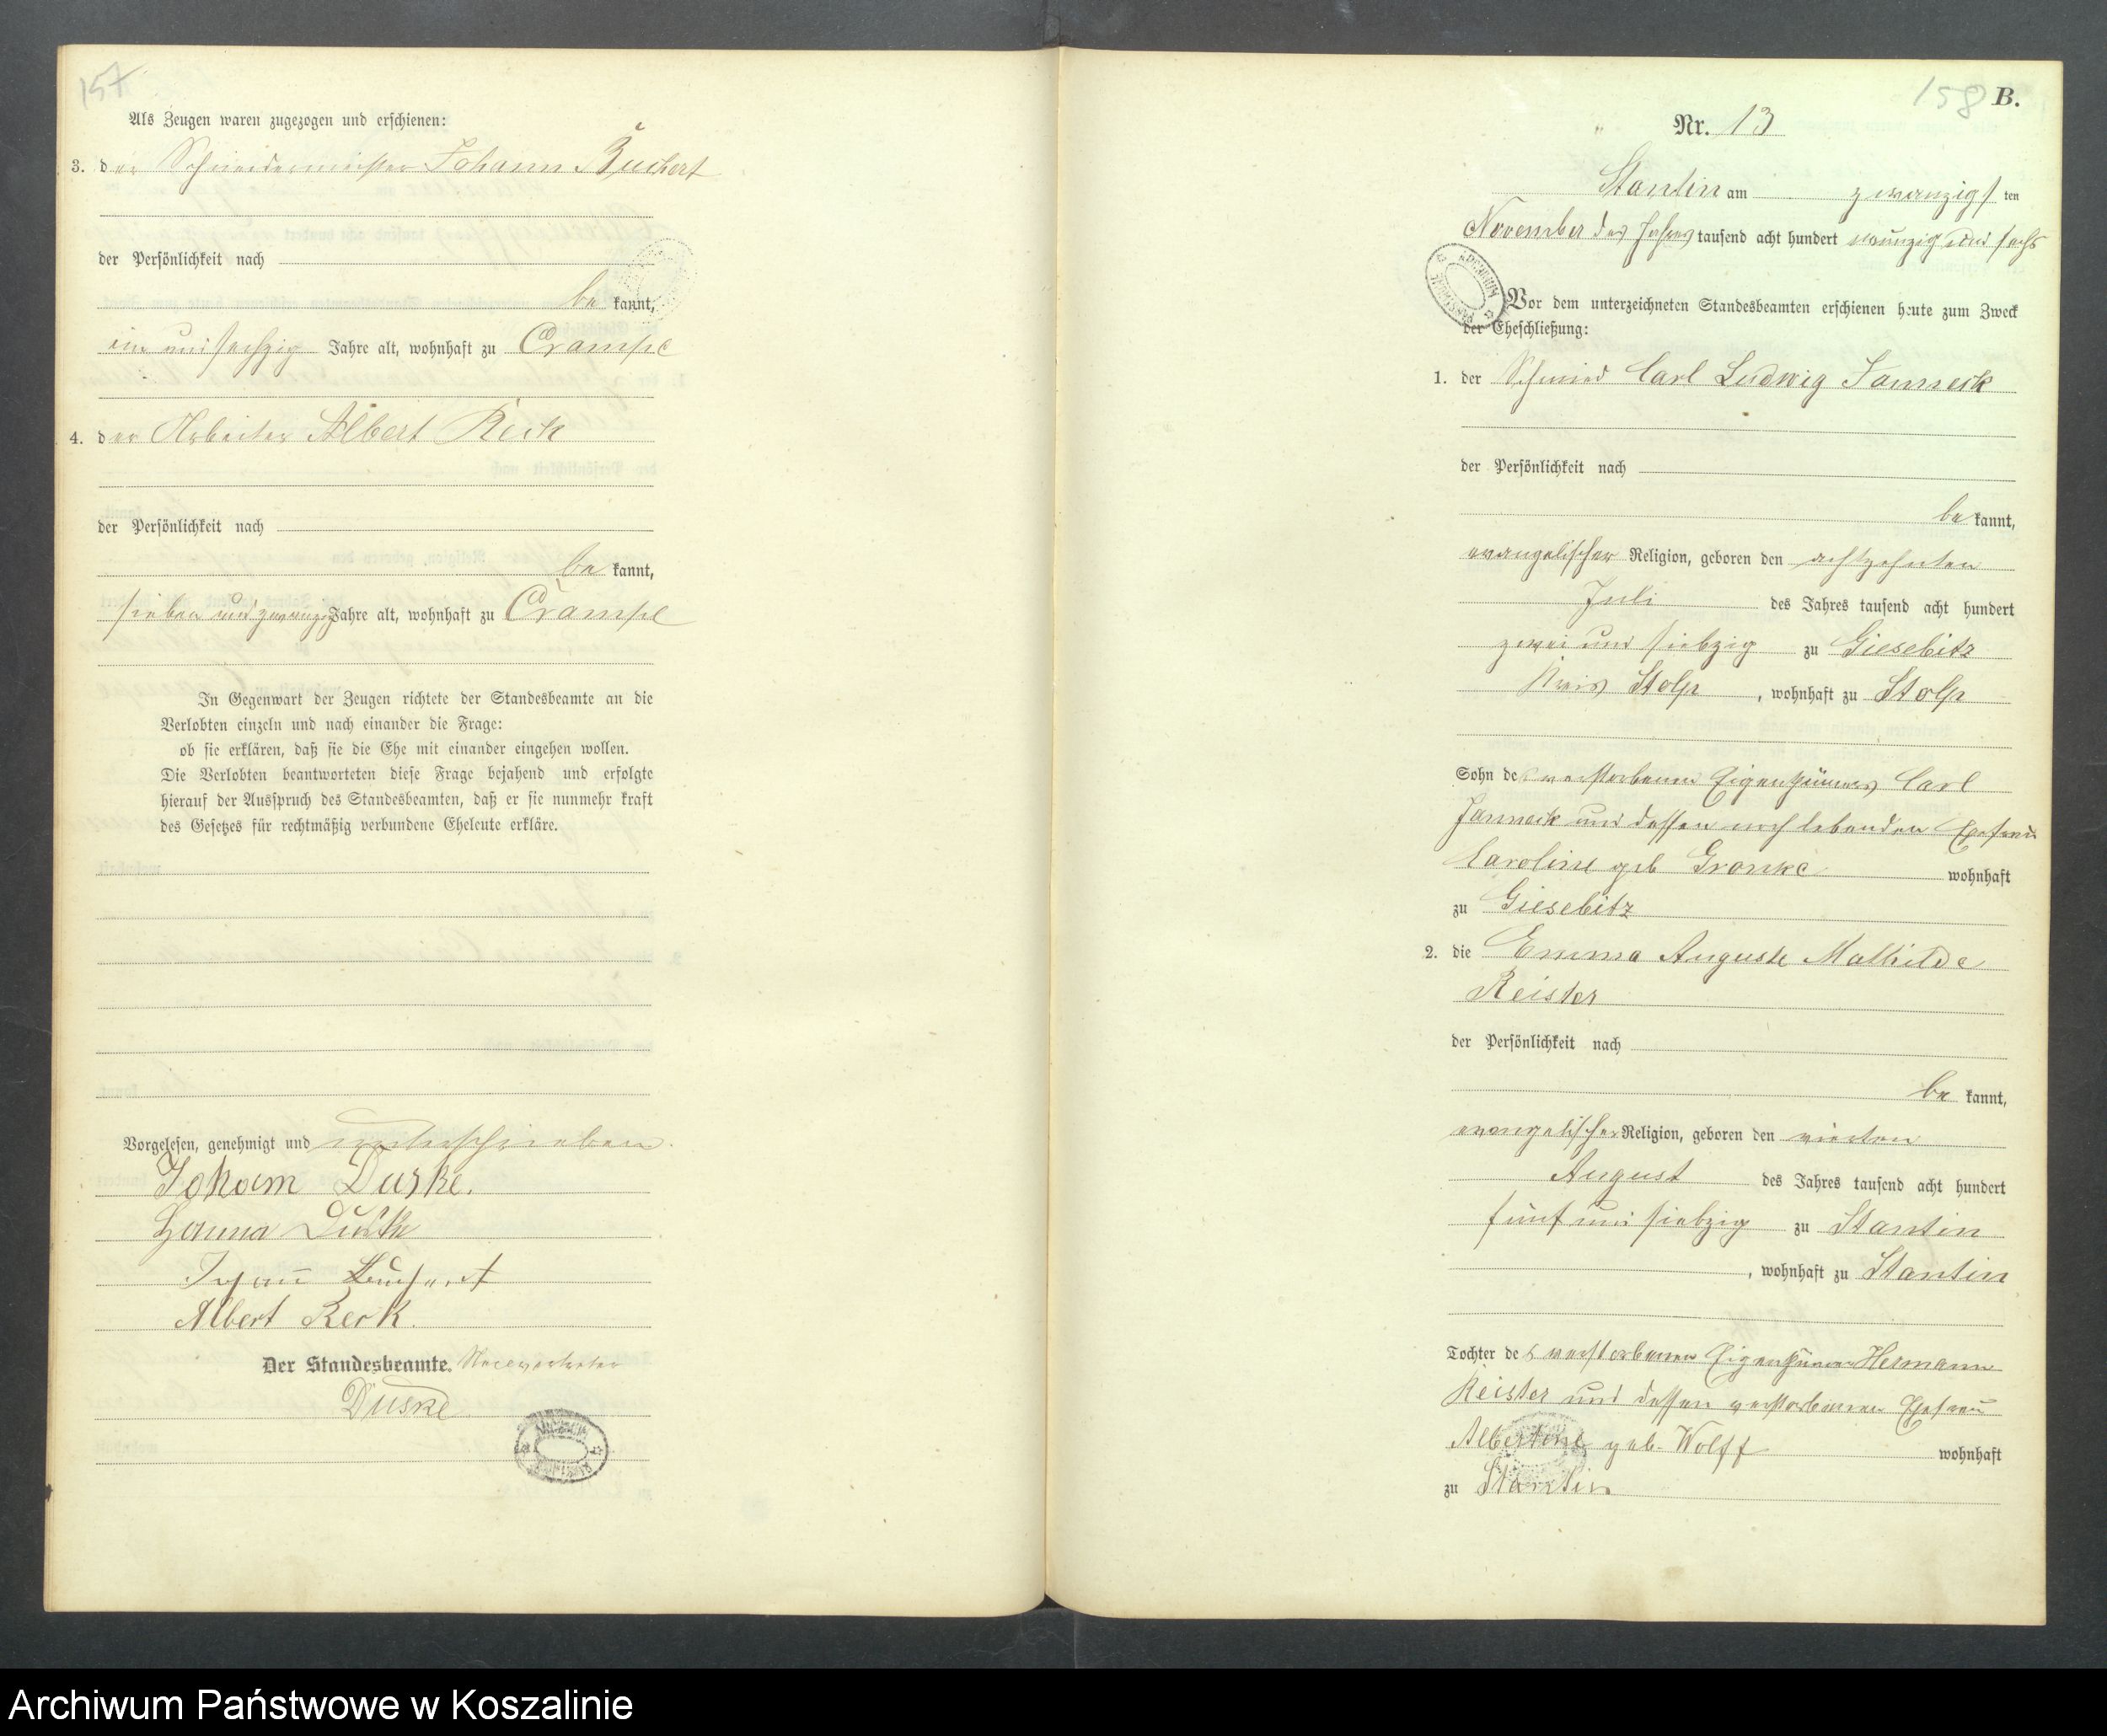 157
Als Zeugen waren zugezogen und erschienen:
3. der Schneidermeister Johann Buchert
der Persönlichkeit nach
be kannt,
ein und sechzig Jahre alt, wohnhaft zu Crampe
4. der Arbeiter Albert Reck
der Persönlichkeit nach
be kannt,
sieben und zwanzig Jahre alt, wohnhaft zu Crampe
In Gegenwart der Zeugen richtete der Standesbeamte an die
Verlobten einzeln und nach einander die Frage:
ob sie erklären, daß sie die Ehe mit einander eingehen wollen.
Die Verlobten beantworteten diese Frage bejahend und erfolgte
hierauf der Ausspruch des Standesbeamten, daß er sie nunmehr kraft
des Gesetzes für rechtmäßig verbundene Eheleute erkläre.
Vorgelesen, genehmigt und unterschrieben
Johann Duske.
Duske
Johann Buchert
Albert Reck.
Der Standesbeamte.
Duske
158 B.
Nr. 13
Stantin am zwanzigsten
November des Jahres tausend acht hundert neunzig und sechs
Vor dem unterzeichneten Standesbeamten erschienen heute zum Zweck
der Eheschließung:
1. der Schmied Carl Ludwig Janneck
der Persönlichkeit nach
be kannt,
evangelischer Religion, geboren den achtzehnten
Juli des Jahres tausend acht hundert
zwei und siebzig zu Giesebitz
Kreis Stolp, wohnhaft zu Stolp
Sohn des verstorbenen Eigenthümers Carl
Janneck und dessen noch lebenden Ehefrau
Caroline geb Granke wohnhaft
zu Giesebitz
2. die Emma Auguste Mathilde
Reister
der Persönlichkeit nach
be kannt,
evangelischer Religion, geboren den vierten
August des Jahres tausend acht hundert
fünf und siebzig zu Stantin
, wohnhaft zu Stantin
Tochter des verstorbenen Eigenthümer Hermann
Reister und dessen verstorbenen Ehefrau
Albertine geb. Wolff wohnhaft
zu Stantin
Archiwum Państwowe w Koszalinie